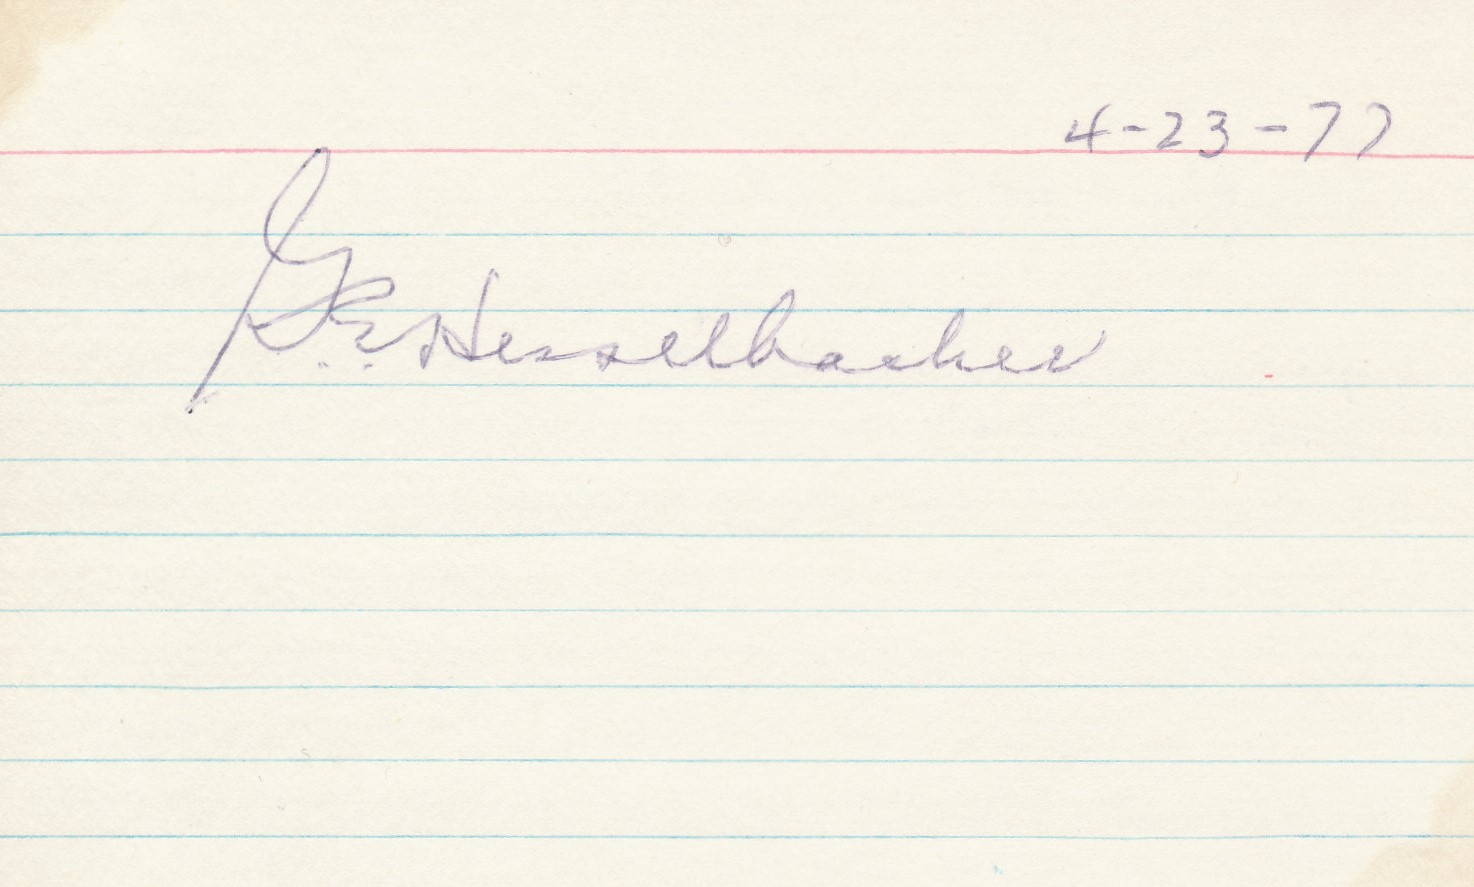 4-23-77
G. E. Hesselbacher